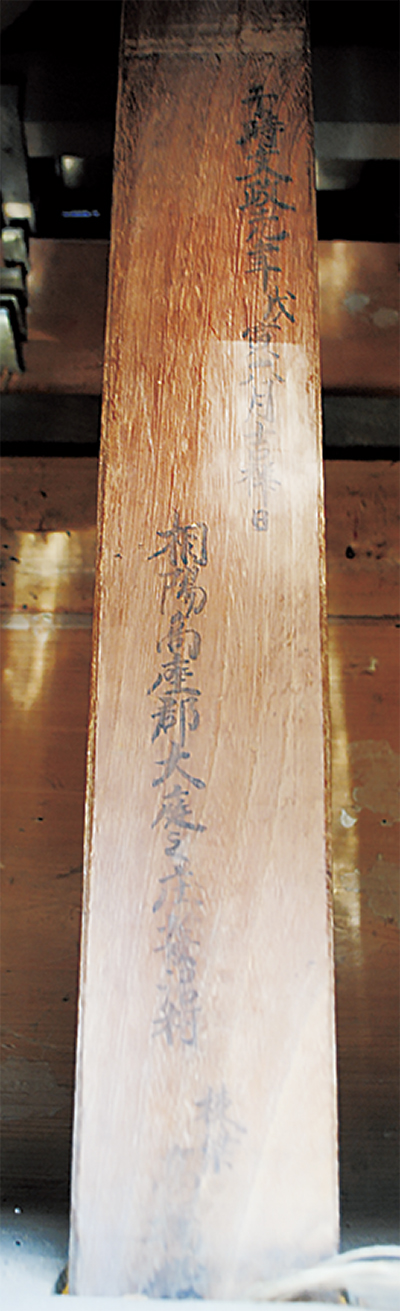 于時文政元年戊寅六月吉祥日
相陽高座郡大庭之庄菱沼村
棟梁